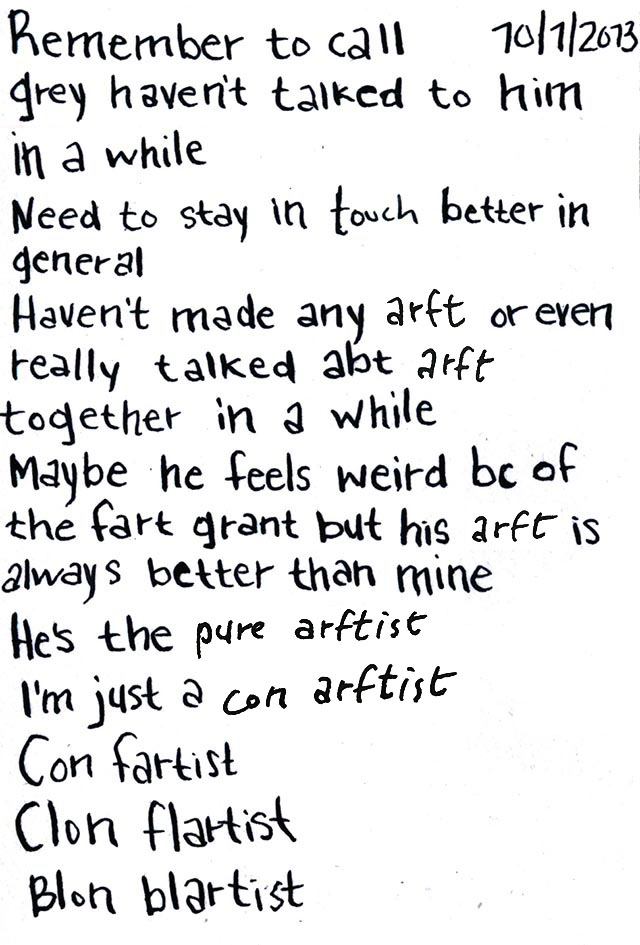 Remember to call 10/1/2013
grey haven't talked to him
in a while
Need to stay in touch better in
general
Haven't made any arft or even
really talked abt arft
together in a while
Maybe he feels weird bc of
the fart grant but his arft is
always better than mine
He's the pure arftist
I'm just a con arftist
Con fartist
Clon flartist
Blon blartist